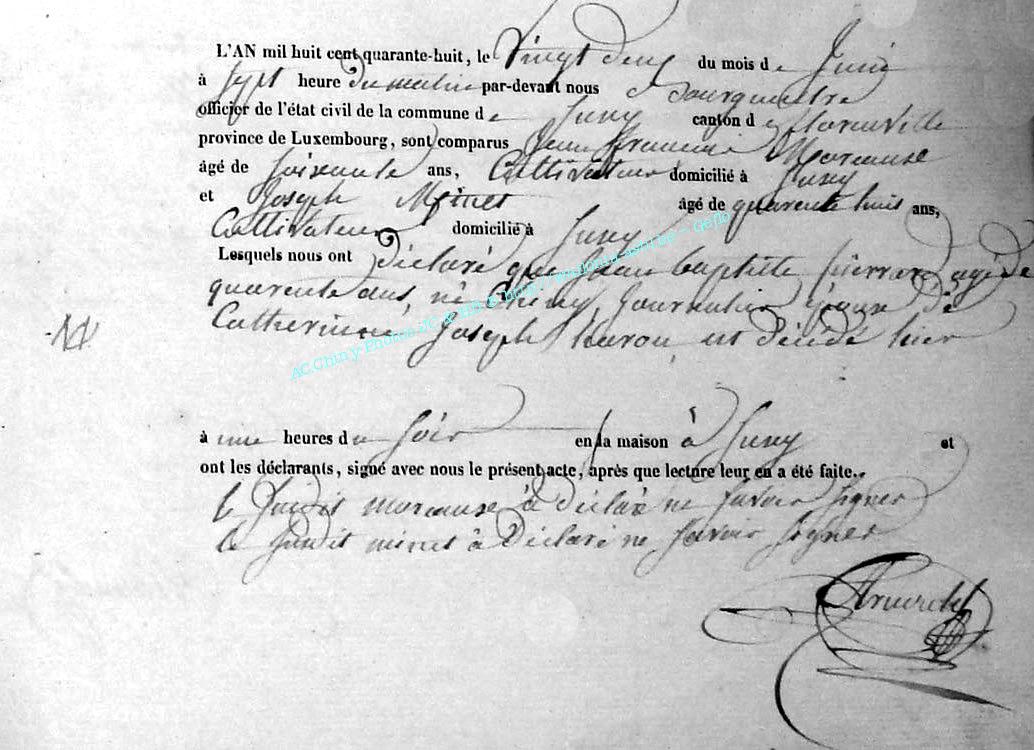 L'AN mil huit cent quarante-huit, le Vingt deux du mois de Juin
à Sept heure du matin par-devant nous
officier de l'état civil de la commune de Suxy canton de florenville
province de Luxembourg, sont comparus Jean francois Moreause
âgé de soixante ans, Cultivateur domicilié à Suxy
et Joseph Minet âgé de quarente huit ans,
Cultivateur domicilié à Suxy
Lesquels nous ont déclaré que Jean baptiste pierrard agé de
quarente ans, né Chiny Journalier époux de
Catherinne Joseph est décédé hier
à une heures du soir en la maison à Suxy et
ont les déclarants, signé avec nous le présent acte, après que lecture leur en a été faite.
le Judit moreause à déclaré ne savoir signer
le Judit minet à déclaré ne savoir signer
AC Chiny Photos JC